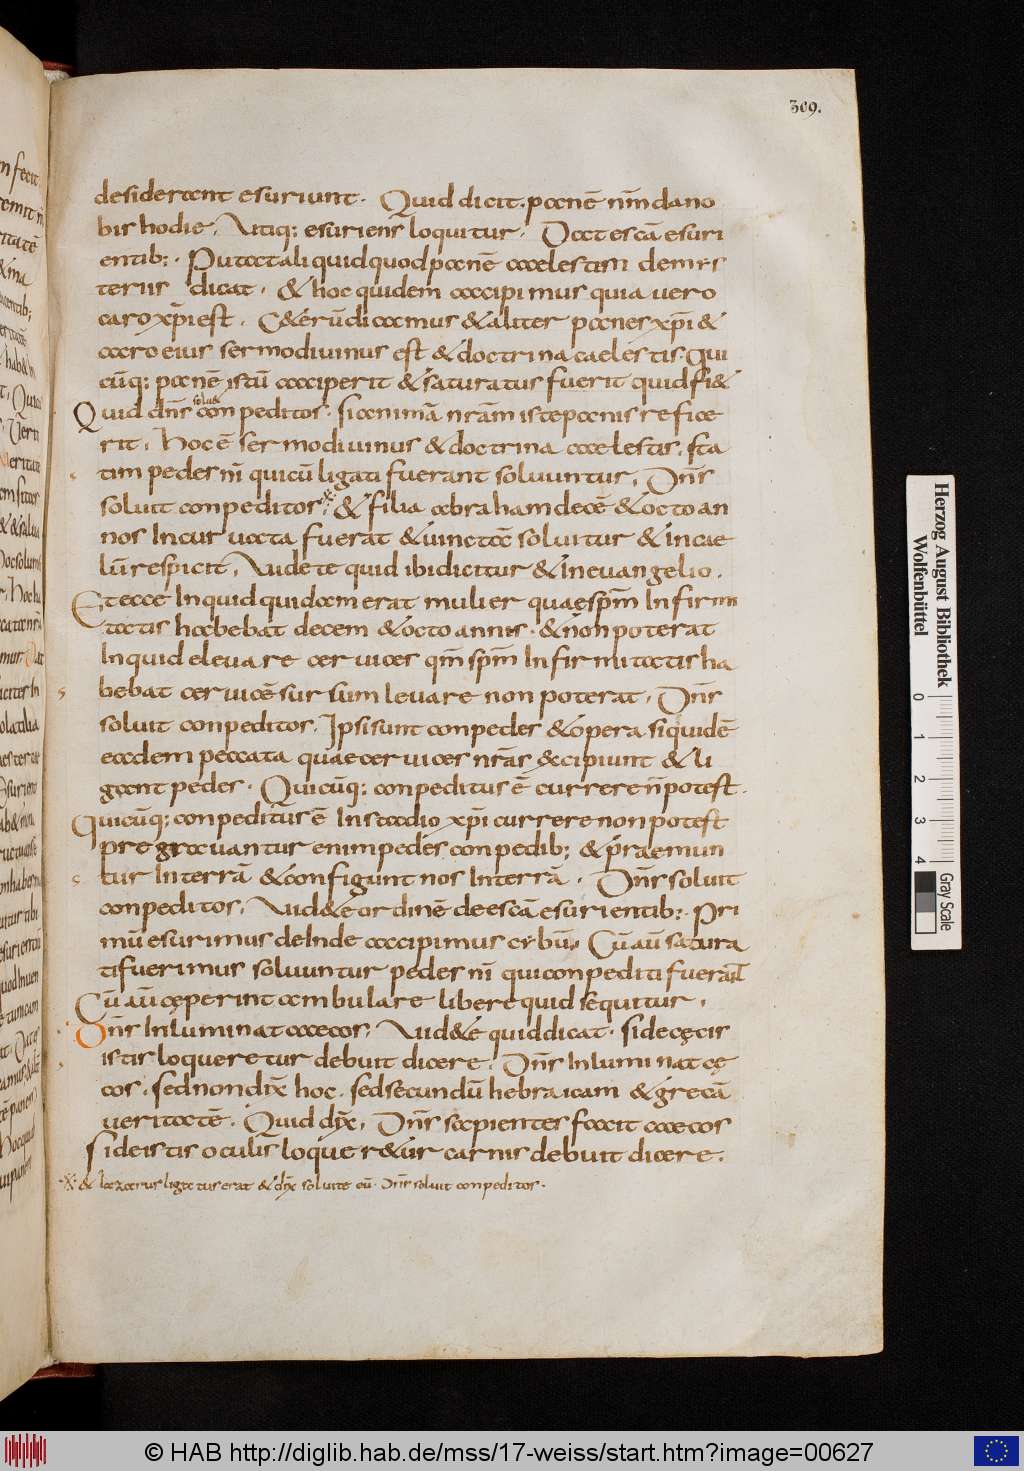 309.
desiderant esuriunt. Quid dicit. panē nr̄m da no
bis hodie. Utiq; esuriens loquitur. Dat escā esuri
entib;. Putat aliquid quod panē caelestem de mis
teriis dicat. & hoc quidem accipimus quia vero
caro xp̄i est. C&erū dicamus & aliter panes xp̄i &
caro eius sermo divinus est & doctrina caelestis. Qui
cūq; panē istū acciperit & saturatus fuerit quid fi&
Quid dn̄s solu& conpeditos. si animā nr̄am iste panis refice
rit. Hoc ē sermo divinus & doctrina caelestis. sta
tim pedes nr̄i qui cū ligati fuerant solvuntur. Dn̄s
soluit conpeditos. & filia abraham decē & octo an
nos incuruata fuerat & uinctā soluitur & in cae
lū respicit. Videte quid ibi dicitur & in euangelio.
Et ecce inquid quidam erat mulier quae sp̄m infirmi
tatis habebat decem & octo annis. & non poterat
inquid eleuare ceruices qm̄ sp̄m infirmitatis ha
bebat ceruicē sursum leuare non poterat. Dn̄s
soluit conpeditos. Ipsi sunt conpedes & opera siquidē
eadem peccata quae ceruices nr̄as excipiunt & li
gant pedes. Quicūq; conpeditus ē currere n̄ potest.
Quicūq; conpeditus ē in stadio xp̄i currere non potest
pregrauantur enim pedes conpedib; & praemun
tur in terrā & configunt nos in terrā. Dn̄s soluit
conpeditos. Uid&e ordinē de escā esurientib;. Pri
mū esurimus deinde accipimus cibū. Cū aū satura
ti fuerimus soluuntur pedes nr̄i qui conpediti fuerant
Cū aū ceperint ambulare libere quid sequitur.
Dn̄s inluminat caecos. Uid&e quid dicat. si de cecis
istis loqueretur debuit dicere. Dn̄s inluminat cę
cos. sed non dix̄ hoc. sed secundū hebraicam & grecā
ueritatē. Quid dix̄. Dn̄s sapientes facit caecos
si de istis oculis loquer&ur carnis debuit dicere.
& lazarus ligatus erat & dix̄ soluite eū. Dn̄s soluit conpeditos.
Herzog August Bibliothek
Wolfenbüttel
0 1 2 3 4
Gray Scale
© HAB http://diglib.hab.de/mss/17-weiss/start.htm?image=00627